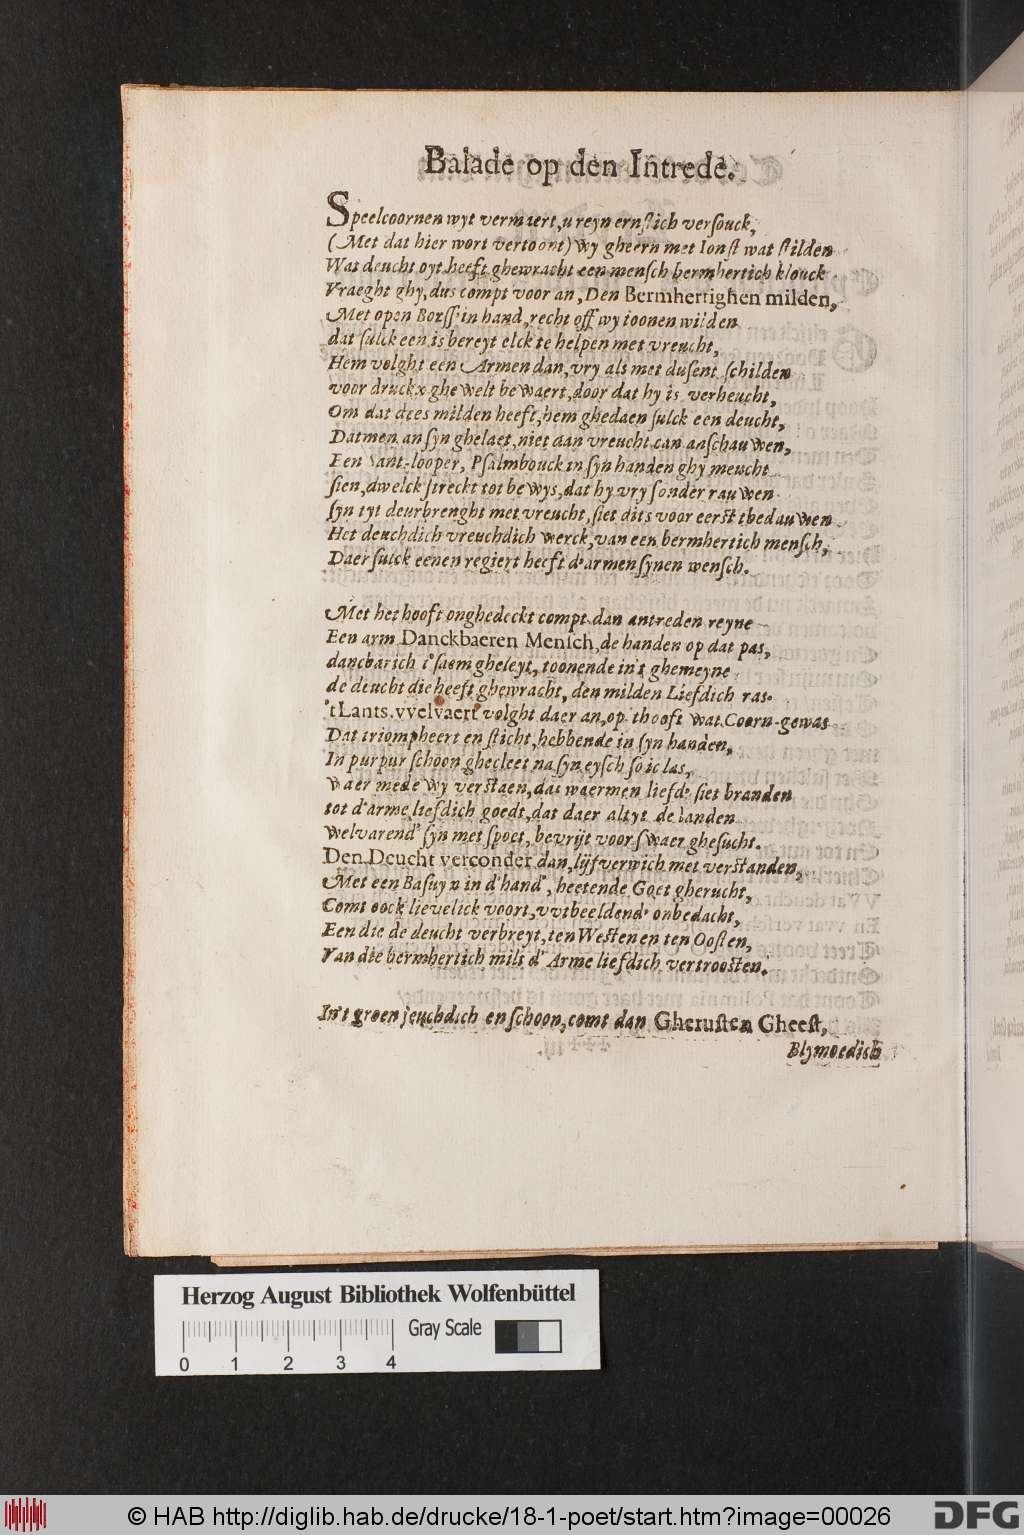 Balade op den Intrede.
Speelcoornen wyt vermaert, u reyn ernſtich verſouck,
(Met dat hier wort vertoont) wy gheern met Ionſt wat ſtilden
Wat deucht oyt heeft ghewracht een menſch bermhertich klouck
Vraeght ghy, dus compt voor an, Den Bermhertighen milden,
Met open Borſſ' in hand, recht off wy toonen wilden
dat ſulck een is bereyt elck te helpen met vreucht,
Hem volght een Armen dan, vry als met duſent ſchilden
voor druckx ghewelt bewaert, door dat hy is verheucht,
Om dat dees milden heeft, hem ghedaen ſulck een deucht,
Datmen an ſyn ghelaet, niet dan vreucht can aſchauwen,
Een looper, Pſalmbouck in ſyn handen ghy meucht
ſien, dwelck ſtreckt tot bewys, dat hy vry ſonder rauwen
ſyn tyt deurbrenght met vreucht, ſiet dits voor eerſt tbedauwen
Het deuchdich vreuchdich werck, van een bermhertich menſch,
Daer ſulck eenen regiert heeft d'armen ſynen wenſch.
Met het hooft onghedeckt compt dan antreden reyne
Een arm Danckbaeren Menſch, de handen op dat pas,
dancbarich t'ſaem gheleyt, toonende in't ghemeyne
de deucht die heeft ghewracht, den milden Liefdich ras.
't Lants vvelvaert volght daer an, op thooft wat Coorn-gewas
Dat triompheert en ſticht, hebbende in ſyn handen,
In purpur ſchoon ghecleet na ſyn eyſch ſoic las,
Waer mede wy verſtaen, dat waermen liefde ſiet branden
tot d'arme liefdich goedt, dat daer altyt de landen
welvarend' ſyn met ſpoet, bevrijt voor ſwaer gheſucht.
Den Deucht verconder dan, lijfverwich met verſtanden,
Met een Baſuyn in d'hand', heetende Goet gherucht,
Comt oock lievelick voort, vvtbeeldend' onbedacht,
Een die de deucht verbreyt, ten Weſten en ten Ooſten,
Van die bermhertich milt d' Arme liefdich vertrooſten.
In't groen jeuchdich en ſchoon, comt dan Gheruſten Gheeſt,
Blymoedich
Herzog August Bibliothek Wolfenbüttel
Gray Scale
0 1 2 3 4
© HAB http://diglib.hab.de/drucke/18-1-poet/start.htm?image=00026
DFG